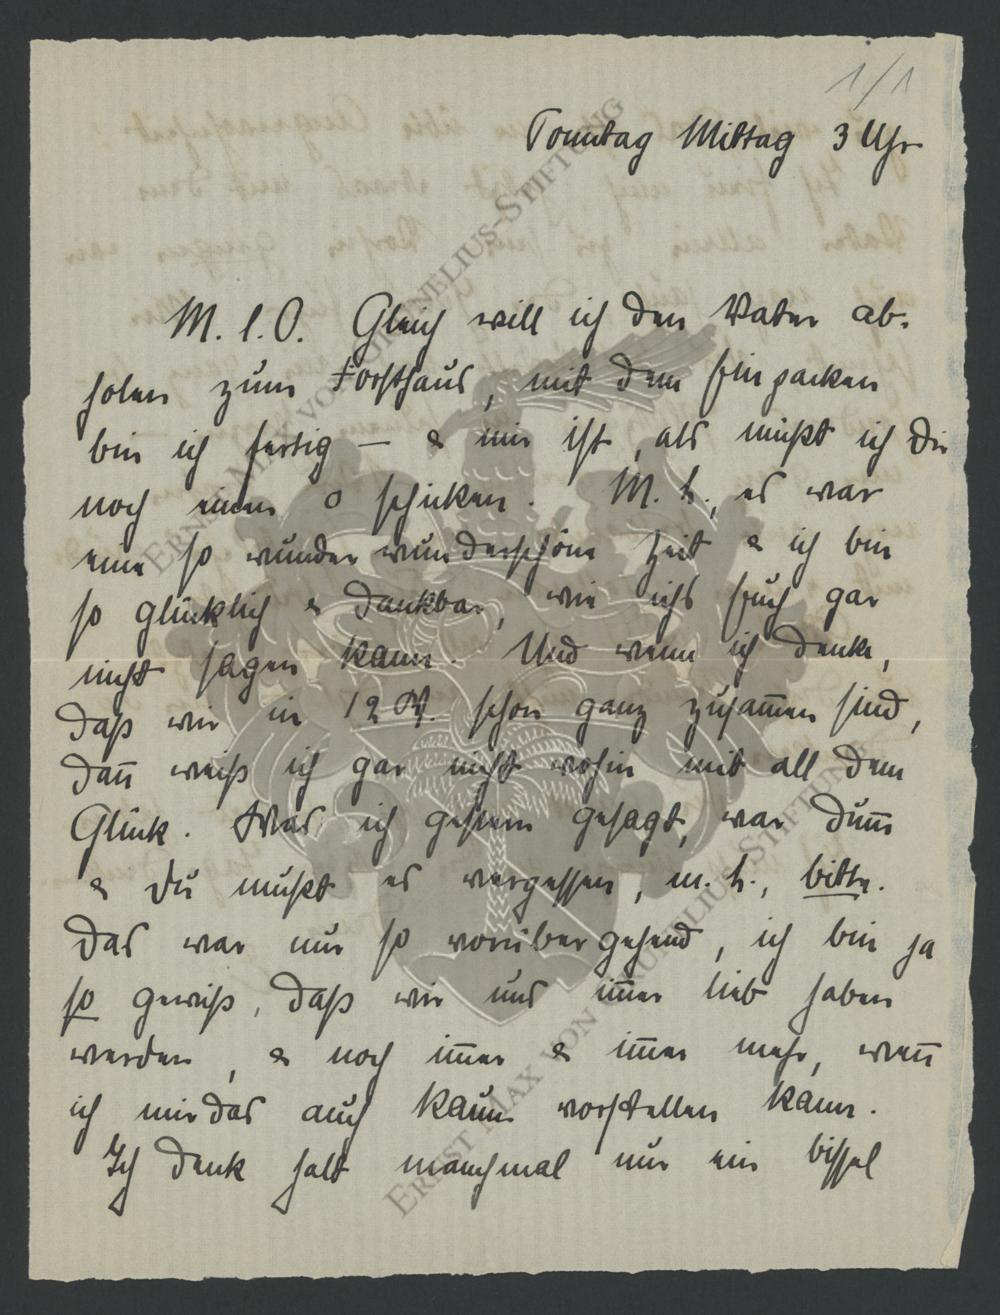 1/1
Sonntag Mittag 3 Uhr
M. l. O. Gleich will ich den Vater ab-
holen zum Forsthaus, mit dem Einpacken
bin ich fertig — & mir ist, als müßt ich Dir
noch einen o schicken. M. L., es war
eine so wunder wunderschöne Zeit & ich bin
so glücklich & dankbar, wie ichs Euch gar
nicht sagen kann. Und wenn ich denke,
daß wir in 12 W. schon ganz zusam̅en sind,
dan̅ weiß ich gar nicht wohin mit all dem
Glück. Was ich gestern gesagt, war dum̅
& Du mußt es vergessen, m. L., bitte.
Das war nur so vorübergehend, ich bin ja
so gewiß, daß wir uns im̅er lieb haben
werden, & noch im̅er & im̅er mehr, wen̅
ich mir das auch kaum vorstellen kann.
Ich denk halt manchmal nur ein bissel
ERNST MAX VON GRUNELIUS-STIFTUNG
ERNST MAX VON GRUNELIUS-STIFTUNG